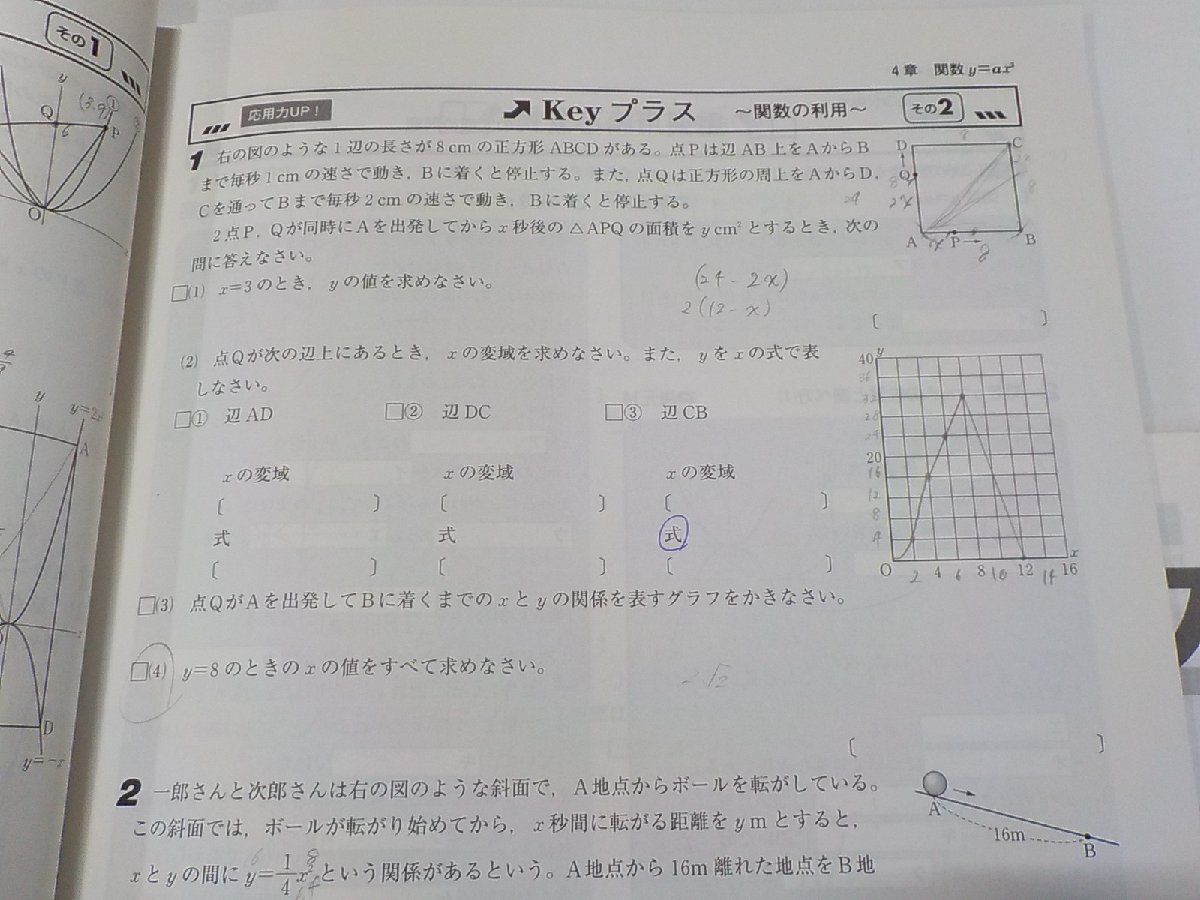 その1
y
Q
6
P
O
y
y=2x
A
x
D
y=-x
4章 関数 y=ax²
応用力UP!
Key プラス
〜関数の利用〜
その2
1 右の図のような1辺の長さが8cmの正方形ABCDがある。点Pは辺AB上をAからB
まで毎秒1cmの速さで動き，Bに着くと停止する。また，点Qは正方形の周上をAからD，
Cを通ってBまで毎秒2cmの速さで動き，Bに着くと停止する。
2点P，Qが同時にAを出発してからx秒後の△APQの面積をycm²とするとき，次の
問に答えなさい。
D
8
C
Q
8
2x
24
A
x
P
B
8
□(1) x=3のとき，yの値を求めなさい。
(24 - 2x)
2(12 - x)
〔 〕
(2) 点Qが次の辺上にあるとき，xの変域を求めなさい。また，yをxの式で表
しなさい。
□① 辺AD
□② 辺DC
□③ 辺CB
xの変域
xの変域
xの変域
〔 〕
〔 〕
〔 〕
式
式
式
〔 〕
〔 〕
〔 〕
y
40
36
32
28
24
20
16
12
8
4
O
2
4
6
8
10
12
14
16
x
□(3) 点QがAを出発してBに着くまでのxとyの関係を表すグラフをかきなさい。
□(4) y=8のときのxの値をすべて求めなさい。
√2
〔 〕
2 一郎さんと次郎さんは右の図のような斜面で，A地点からボールを転がしている。
この斜面では，ボールが転がり始めてから，x秒間に転がる距離をymとすると，
xとyの間にy=1/4x²という関係があるという。A地点から16m離れた地点をB地
6
8
64
A
16m
B